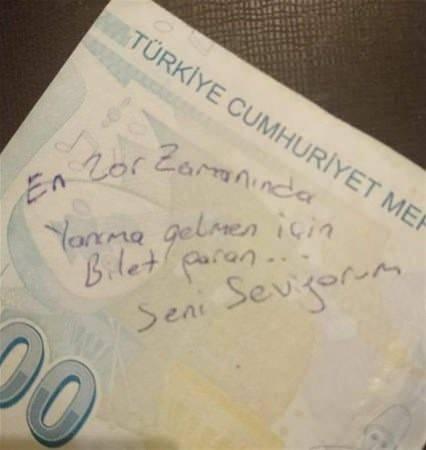 TÜRKİYE CUMHURİYET MER
En zor Zamanında
Yanıma gelmen için
Bilet paran...
Seni Seviyorum
00